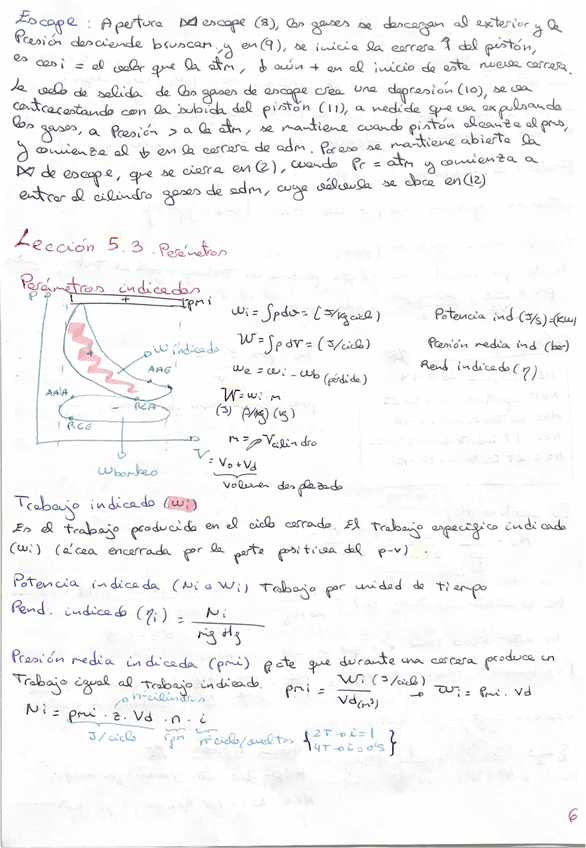 Escape : Apertura ⋈ escape (8), los gases se descargan al exterior y la
Presión desciende bruscam. y en (9), se inicia la carrera ↑ del pistón,
es casi = el valor que la atm, ↓ aún + en el inicio de esta nueva carrera.
La veloc de salida de los gases de escape crea una depresión (10), se va
contrarrestando con la subida del pistón (11), a medida que va expulsando
los gases, a Presión > a la atm, se mantiene cuando pistón alcanza el pms,
y comienza el ↓ en la carrera de adm. Proceso se mantiene abierta la
⋈ de escape, que se cierra en (2), cuando Pr = atm y comienza a
entrar al cilindro gases de adm, cuya válvula se abre en (12)
Lección 5.3. Parámetros
Parámetros indicados
P
+
pmi
W indicado
+
AAE
AAA
RCA
RCE
-
V
W bombeo
wi = ∫pdv = (J/kg ciclo)
W = ∫pdV = (J/ciclo)
we = wi - wb (pérdida)
W = wi · m
(J) (J/kg) (kg)
m = ρ Vcilindro
= V0 + Vd
volumen desplazado
Potencia ind (J/s) = (kW)
Presión media ind (bar)
Rend indicado (η)
Trabajo indicado (wi)
Es el trabajo producido en el ciclo cerrado. El Trabajo específico indicado
(wi) (área encerrada por la parte positiva del p-v).
Potencia indicada (Ni o Wi) Trabajo por unidad de tiempo
Rend. indicado (ηi) = Ni / ṁg Hg
Presión media indicada (pmi) p cte que durante una carrera produce un
Trabajo igual al Trabajo indicado. pmi = Wi (J/ciclo) / Vd (m³) → Wi = Pmi · Vd
nº cilindros
Ni = pmi · z · Vd · n · i
J/ciclo rpm nº ciclo/vueltas {2T → i = 1
4T → i = 0'5}
6